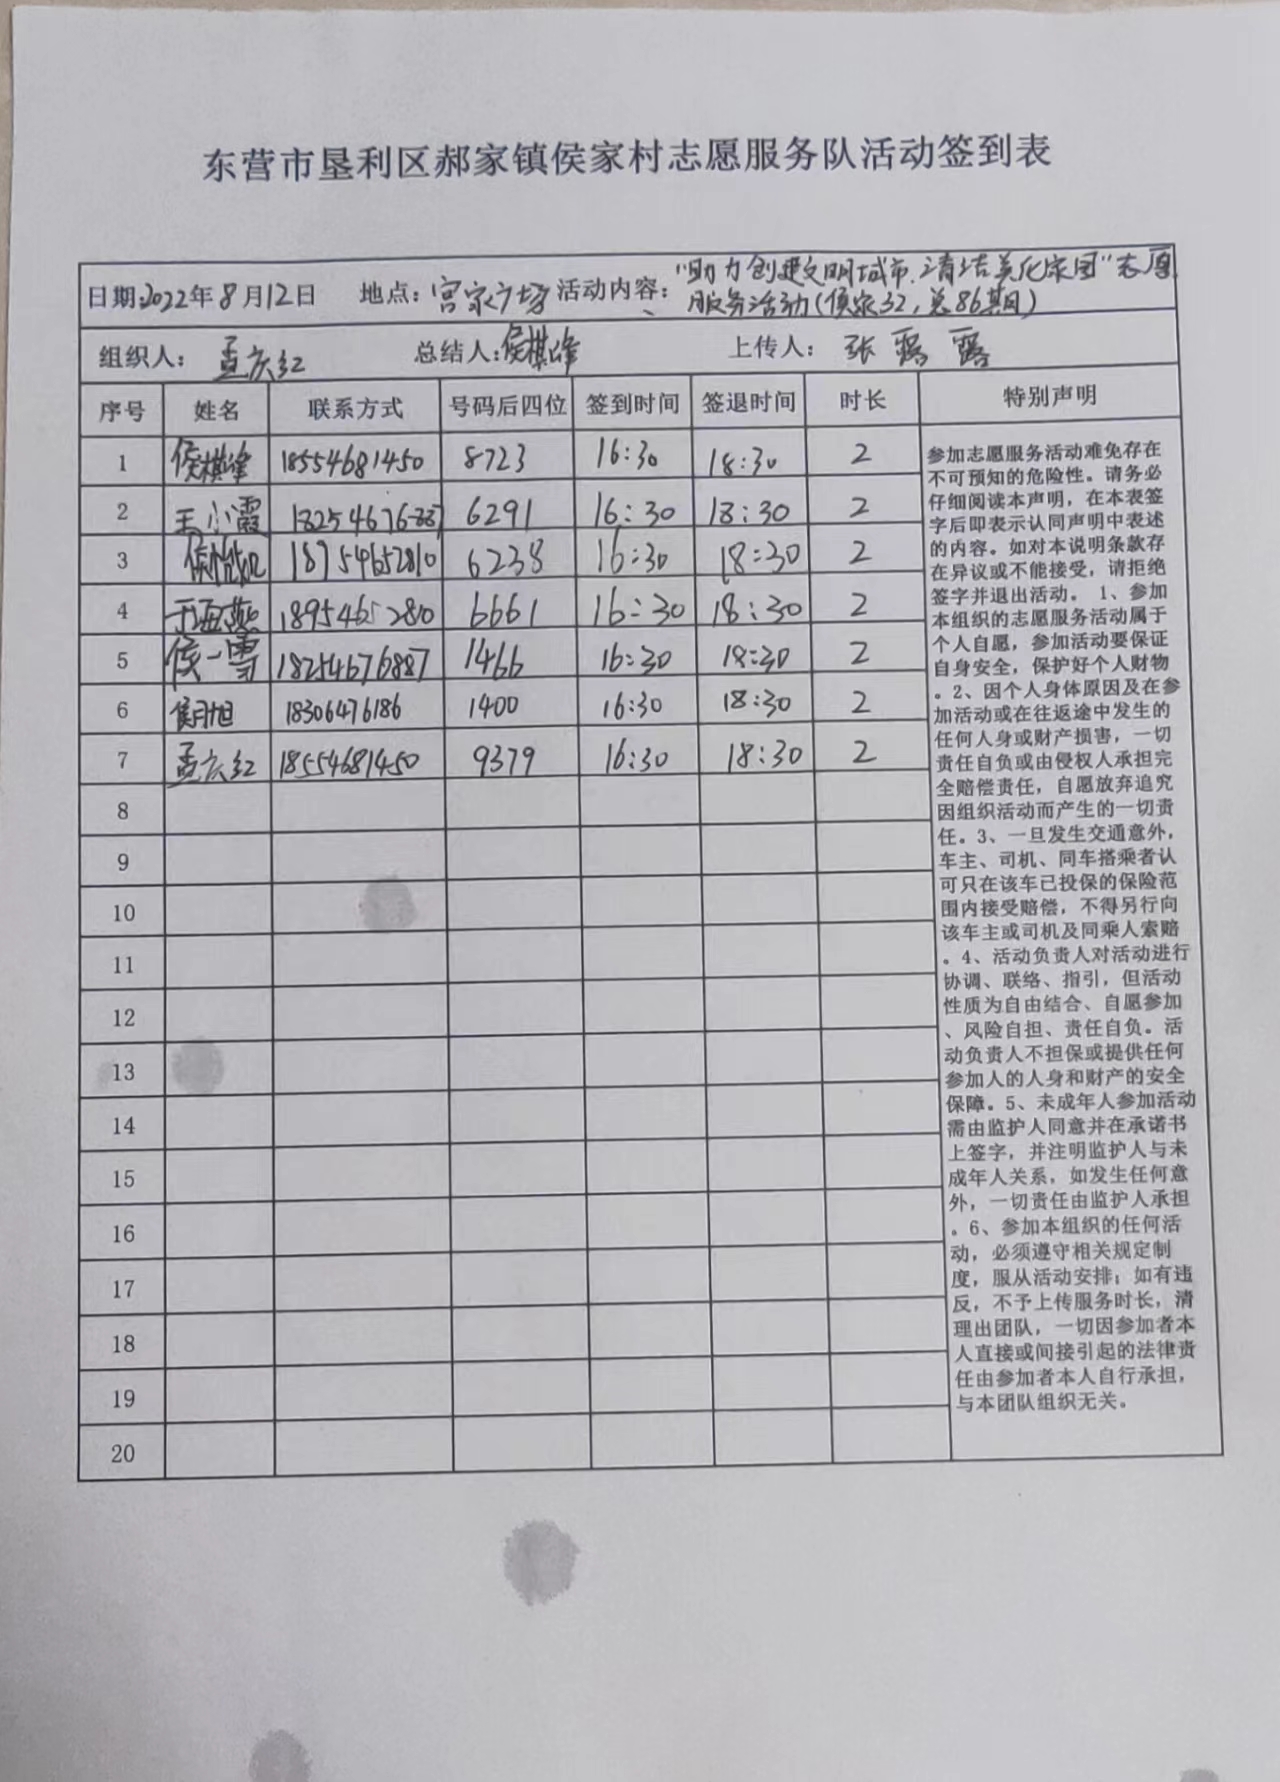 东营市垦利区郝家镇侯家村志愿服务队活动签到表
日期:2022年8月12日 地点:宫家广场 活动内容:"助力创建文明城市、清洁美化家园"志愿
服务活动(侯家32,总86期)
组织人:孟庆红 总结人:侯棋峰 上传人:张露露
序号 姓名 联系方式 号码后四位 签到时间 签退时间 时长 特别声明
1 侯棋峰 18554681450 8723 16:30 18:30 2
2 王小霞 18254676887 6291 16:30 18:30 2
3 18954652810 6238 16:30 18:30 2
4 于海燕 18954652810 6661 16:30 18:30 2
5 侯一雪 18254676887 1466 16:30 18:30 2
6 侯月旭 18306476186 1400 16:30 18:30 2
7 孟庆红 18554681450 9379 16:30 18:30 2
8
9
10
11
12
13
14
15
16
17
18
19
20
参加志愿服务活动难免存在
不可预知的危险性。请务必
仔细阅读本声明,在本表签
字后即表示认同声明中表述
的内容。如对本说明条款存
在异议或不能接受,请拒绝
签字并退出活动。 1、参加
本组织的志愿服务活动属于
个人自愿,参加活动要保证
自身安全,保护好个人财物
。2、因个人身体原因及在参
加活动或在往返途中发生的
任何人身或财产损害,一切
责任自负或由侵权人承担完
全赔偿责任,自愿放弃追究
因组织活动而产生的一切责
任。3、一旦发生交通意外,
车主、司机、同车搭乘者认
可只在该车已投保的保险范
围内接受赔偿,不得另行向
该车主或司机及同乘人索赔
。4、活动负责人对活动进行
协调、联络、指引,但活动
性质为自由结合、自愿参加
、风险自担、责任自负。活
动负责人不担保或提供任何
参加人的人身和财产的安全
保障。5、未成年人参加活动
需由监护人同意并在承诺书
上签字,并注明监护人与未
成年人关系,如发生任何意
外,一切责任由监护人承担
。6、参加本组织的任何活
动,必须遵守相关规定制
度,服从活动安排;如有违
反,不予上传服务时长,清
理出团队,一切因参加者本
人直接或间接引起的法律责
任由参加者本人自行承担,
与本团队组织无关。